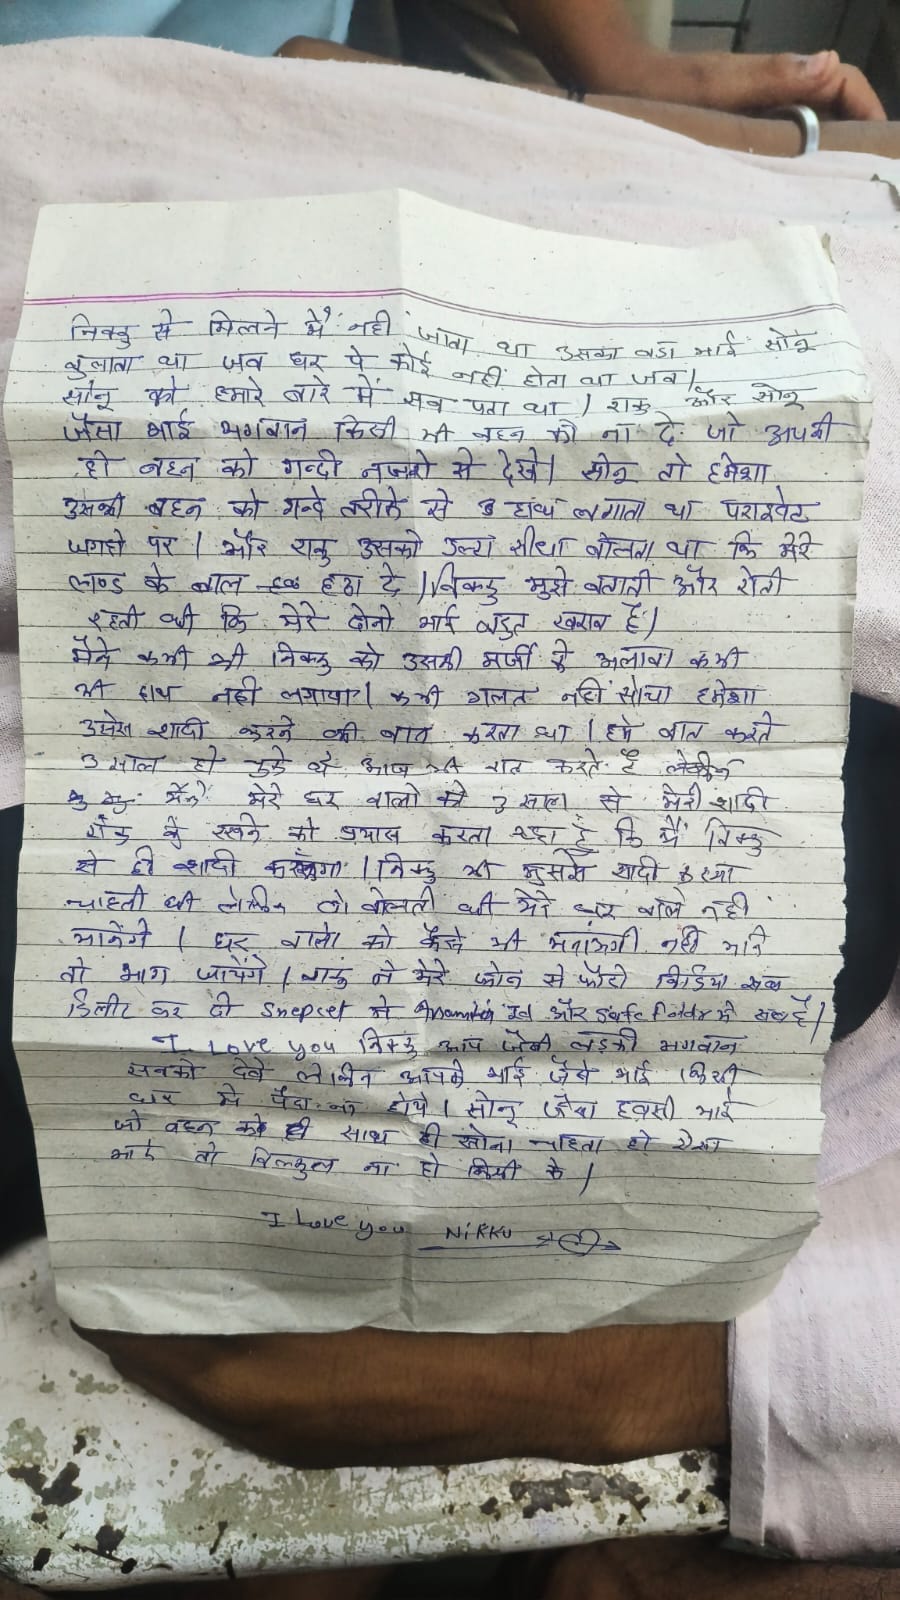 निक्कु से मिलने मैं नही जाता था उसका बडा भाई सोनू
बुलाता था जब घर पे कोई नहीं होता था जब।
सोनू को हमारे बारे में सब पता था। राकु और सोनू
जैसा भाई भगवान किसी भी बहन को ना दे जो अपनी
ही बहन को गन्दी नजरो से देखे। सोनू तो हमेशा
उसकी बहन को गन्दे तरीके से हाथ लगाता था पराइवेट
जगहो पर। और राकु उसको उल्टा सीधा बोलता था कि मेरे
लण्ड के बाल हटा दे। निक्कु मुझे बताती और रोती
रहती थी कि मेरे दोनो भाई बहुत खराब है।
मैंने कभी भी निक्कु को उसकी मर्जी के अलावा कभी
भी हाथ नही लगाया। कभी गलत नहीं सोचा हमेशा
उससे शादी करने की बात करता था। हमे बात करते
3 साल हो चुके थे आज भी बात करते है लेकीन
मैंने मेरे घर वालो को 3 साल से मेरी शादी
रोक के रखने को प्रयास करता रहा हूँ कि मैं निक्कु
से ही शादी करूंगा। निक्कु भी मुझसे शादी करना
चाहती थी लेकिन वो बोलती थी मेरे घर वाले नही
मानेंगे। घर वालो को कैसे भी मनाऊंगी नही माने
तो भाग जायेंगे। राकु ने मेरे फोन से फोटो विडिया सब
डिलीट कर दी Snepset में और Safe folder में सब है।
I Love you निक्कु आप जैसी लड़की भगवान
सबको देवे लेकिन आपके भाई जैसे भाई किसी
घर में पैदा ना होये। सोनू जैसा हवसी भाई
जो बहन के ही साथ ही सोना चाहता हो ऐसा
भाई तो बिल्कुल ना हो किसी के।
I Love you NIKKU